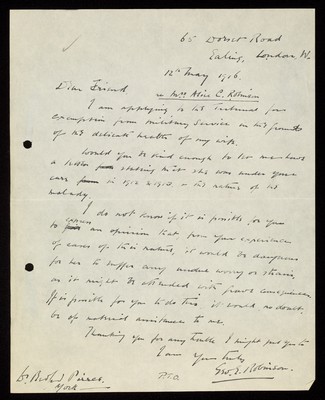 65 Dorset Road
Ealing, London, W.
12th May 1916.
Dear Friend
re Mrs Alice C. Robinson
I am applying to the Tribunal for
exemption from military service on the grounds
of the delicate health of my wife.
Would you be kind enough to let me have
a letter stating that she was under your
care from in 1912 & 1913, & the nature of the
malady.
I do not know if it is possible for you
to express an opinion that from your experience
of cases of this nature, it would be dangerous
for her to suffer any undue worry or strain,
as it might be attended with grave consequences.
If it is possible for you to do this it would no doubt
be of material assistance to me.
Thanking you for any trouble I might put you to
I am Yours truly
Geo. E. Robinson.
Dr Bedford Pierce,
York
P.T.O.